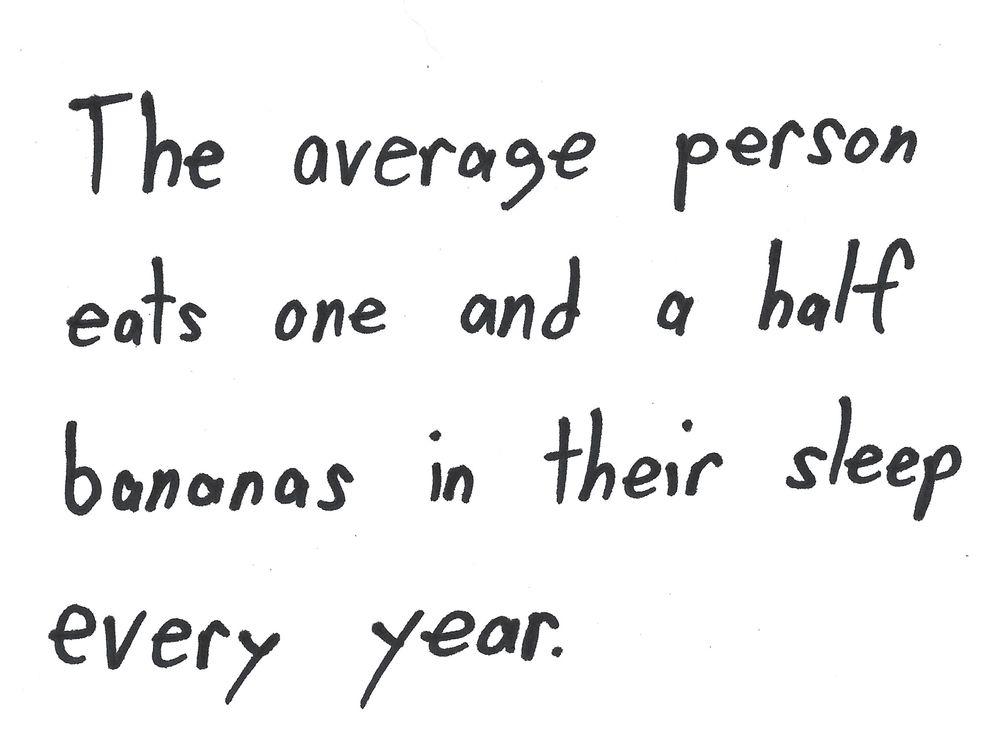 The average person
eats one and a half
bananas in their sleep
every year.